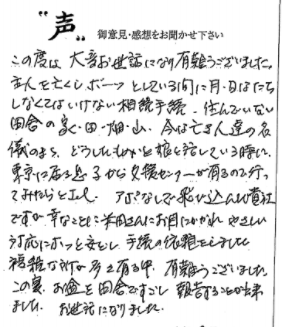 "声"
御意見・感想をお聞かせ下さい
この度は大変お世話になり有難うございました。
主人を亡くしボーッとしている間に月・日はたち
しなくてはいけない相続手続、住んでいない
田舎の家・田・畑・山、今は亡き人達の名
儀のまゝ、どうしたものかと娘と話している時に、
東京に居る息子から支援センターが有るので行っ
てみたらとTEL。アポなしで飛び込んだ貴社
ですが幸なことに半田さんにお目にかかれ、やさしい
対応にホッと安心し手続の依頼をしました。
複雑な所が多々有る中、有難うございました。
この夏、お盆を田舎ですごし報告することが出来
ました。お世話になりました。